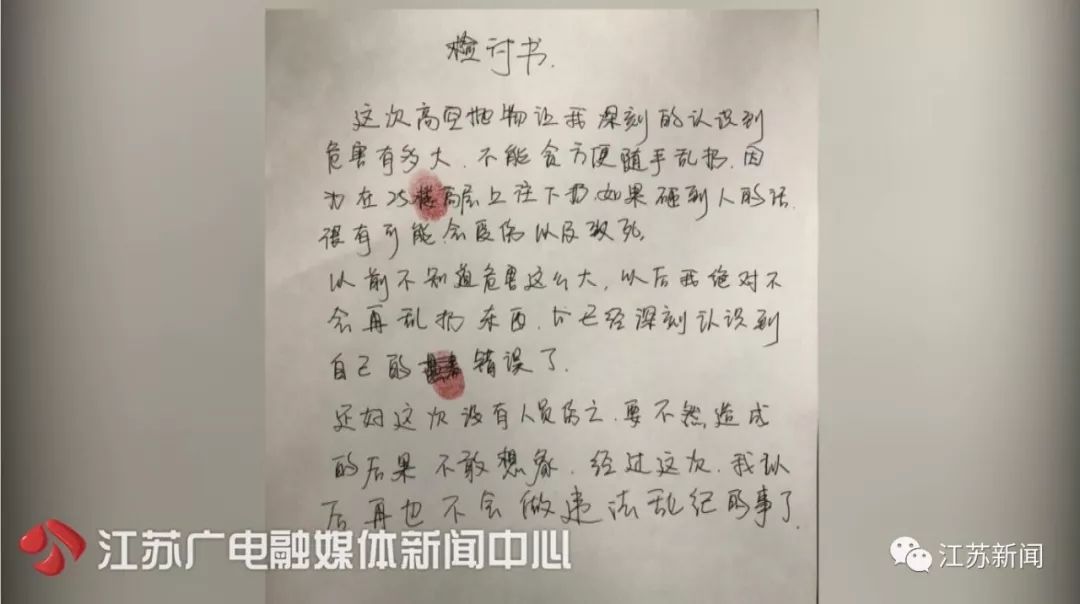 检讨书.
这次高空抛物让我深刻的认识到
危害有多大.不能贪方便随手乱扔.因
为在25楼高层上往下扔.如果砸到人的话.
很有可能会受伤以及致死.
以前不知道危害这么大,以后我绝对不
会再乱扔东西.也已经深刻认识到
自己的 错误了.
还好这次没有人员伤亡.要不然造成
的后果不敢想象.经过这次.我以
后再也不会做违法乱纪的事了.
江苏广电融媒体新闻中心
江苏新闻